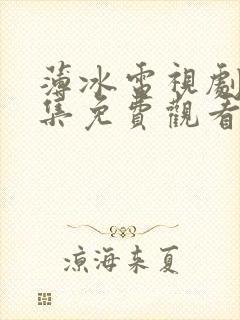 薄冰電視劇
集免費觀看
涼海未夏